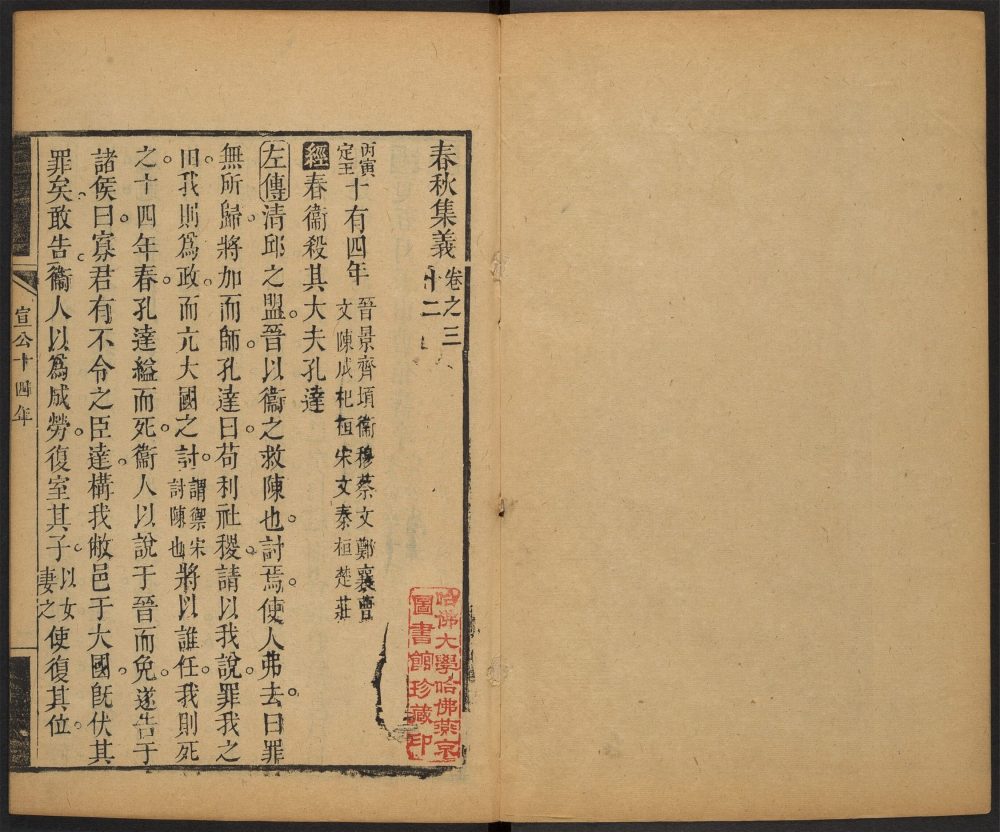 春秋集義卷之三十二
丙寅定王十有四年晉景齊頃衞穆蔡文鄭襄曹文陳成杞桓宋文秦桓楚莊
經春衞殺其大夫孔達
左傳清邱之盟。晉以衞之救陳也。討焉。使人弗去。曰罪
無所歸。將加而師。孔達曰。苟利社稷。請以我說。罪我之
由。我則爲政。而亢大國之討。謂禦宋討陳也將以誰任。我則死
之。十四年春。孔達縊而死。衞人以說于晉而免。遂告于
諸侯曰。寡君有不令之臣達。構我敝邑于大國。旣伏其
罪矣。敢告。衞人以爲成勞。復室其子。以女妻之使復其位。
宣公十四年
哈佛大學哈佛燕京
圖書館珍藏印